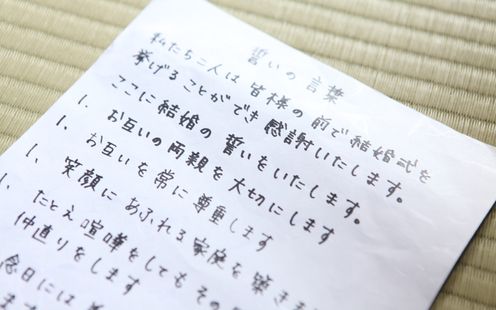 誓いの言葉
私たち二人は 皆様の前で結婚式を
挙げることができ 感謝いたします。
ここに結婚の誓いをいたします。
1. お互いの両親を大切にします
1. お互いを常に尊重します
1. 笑顔にあふれる家庭を築きま
1. たとえ喧嘩をしてもその
仲直りをします
念日には
ます